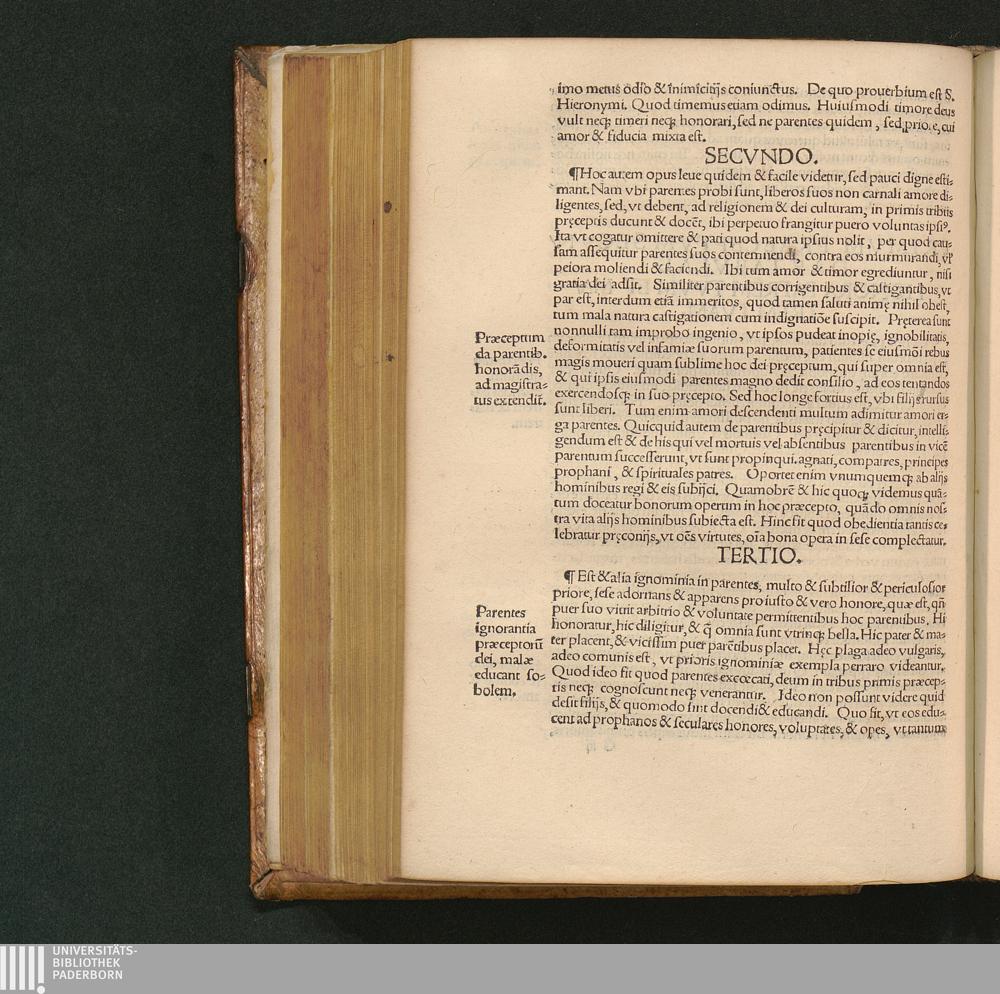 imo metus odio & inimicitijs coniunctus. De quo prouerbium est S.
Hieronymi. Quod timemus etiam odimus. Huiusmodi timore deus
vult neqꝫ timeri neqꝫ honorari, sed ne parentes quidem, sed, priore, cui
amor & fiducia mixta est.
SECVNDO.
¶Hoc autem opus leue quidem & facile videtur, sed pauci digne esti-
mant. Nam vbi parentes probi sunt, liberos suos non carnali amore di-
ligentes, sed, vt debent, ad religionem & dei culturam, in primis tribus
pręceptis ducunt & docēt, ibi perpetuo frangitur puero voluntas ipsiꝰ.
Ita vt cogatur omittere & pati quod natura ipsius nolit, per quod cau-
sam assequitur parentes suos contemnendi, contra eos murmurandi, vl'
peiora moliendi & faciendi. Ibi tum amor & timor egrediuntur, nisi
gratia dei adsit. Similiter parentibus corrigentibus & castigantibus, vt
par est, interdum etiā immeritos, quod tamen saluti animę nihil obest,
tum mala natura castigationem cum indignatiōe suscipit. Pręterea sunt
nonnulli tam improbo ingenio, vt ipsos pudeat inopię, ignobilitatis,
deformitatis vel infamiæ suorum parentum, patientes se eiusmōi rebus
magis moueri quam sublime hoc dei pręceptum, qui super omnia est,
& qui ipsis eiusmodi parentes magno dedit consilio, ad eos tentandos
exercendosqꝫ in suo pręcepto. Sed hoc longe fortius est, vbi filijs rursus
sunt liberi. Tum enim amori descendenti multum adimitur amori er-
ga parentes. Quicquid autem de parentibus pręcipitur & dicitur, intelli-
gendum est & de his qui vel mortuis vel absentibus parentibus in vicē
parentum successerunt, vt sunt propinqui. agnati, compatres, principes
prophani, & spirituales patres. Oportet enim vnumquemqꝫ ab alijs
hominibus regi & eis subijci. Quamobrē & hic quoqꝫ videmus quā-
tum doceatur bonorum operum in hoc præcepto, quādo omnis nos-
tra vita alijs hominibus subiecta est. Hinc fit quod obedientia tantis ce-
lebratur pręconijs, vt oēs virtutes, oīa bona opera in sese complectatur.
TERTIO.
¶ Est & alia ignominia in parentes, multo & subtilior & periculosior
priore, sese adornans & apparens pro iusto & vero honore, quæ est, qn̄
puer suo viuit arbitrio & voluntate permittentibus hoc parentibus. Hi
honoratur, hic diligitur, & q̄ omnia sunt vtrinqꝫ bella. Hic pater & ma-
ter placent, & vicissim puer parētibus placet. Hęc plaga adeo vulgaris,
adeo comunis est, vt prioris ignominiæ exempla perraro videantur.
Quod ideo fit quod parentes excœcati, deum in tribus primis præcep-
tis neqꝫ cognoscunt neqꝫ venerantur. Ideo non possunt videre quid
desit filijs, & quomodo sint docendi & educandi. Quo fit, vt eos edu-
cent ad prophanos & seculares honores, voluptates, & opes, vt tantum
Præceptum
da parentib.
honorādis,
ad magistra-
tus extendit.
Parentes
ignorantia
præceptorū
dei, malæ
educant so-
bolem.
UNIVERSITÄTS-
BIBLIOTHEK
PADERBORN